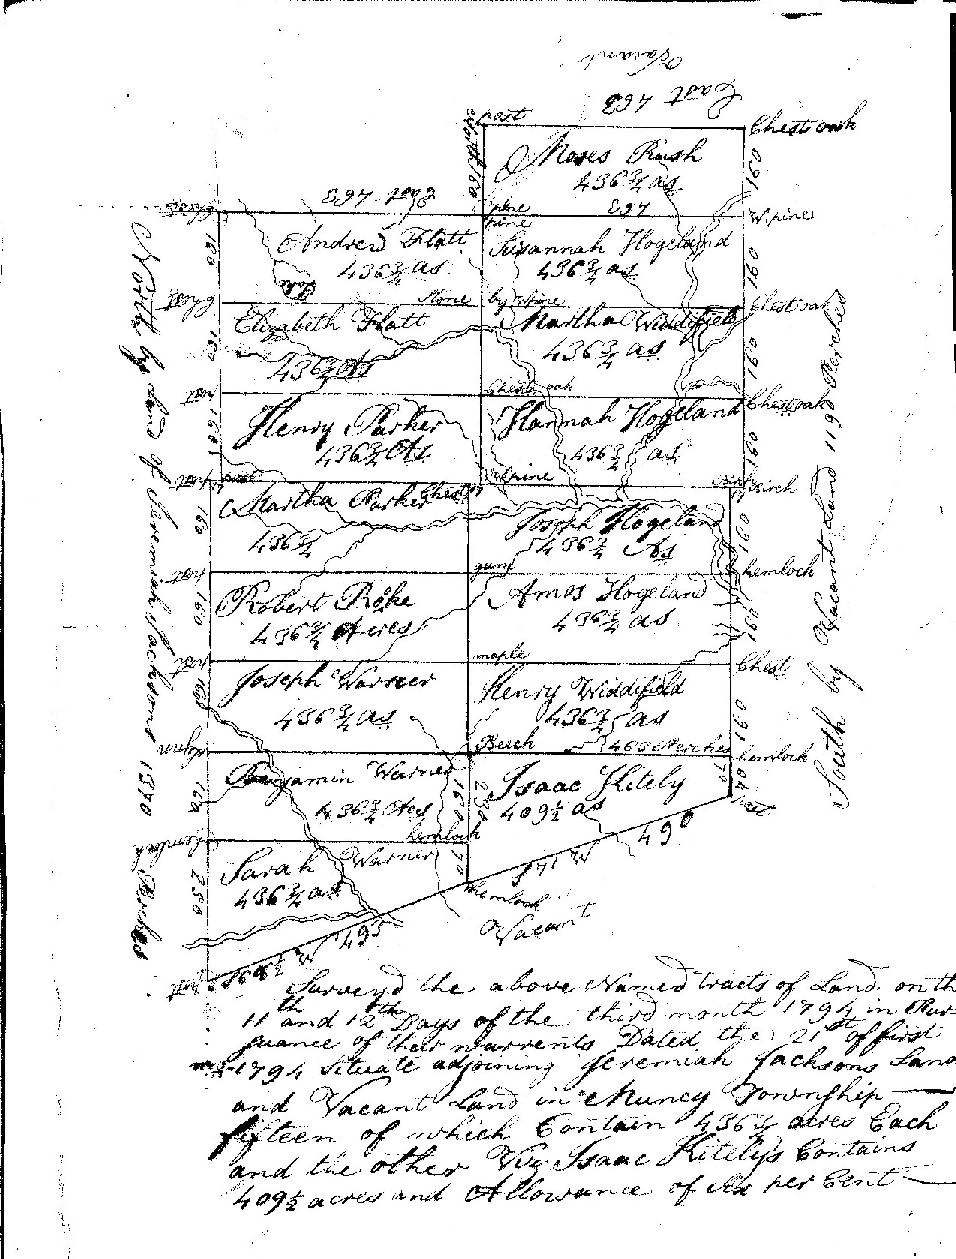 Vacant
East 463
post
Chest oak
North 160
Moses Rush
436 3/4 as
160
East 463
pine
463
W. pine
pine
Andrew Flatt
436 3/4 as
Susannah Hogeland
436 3/4 as
160
160
Stone
by W pine
Chest oak
Elizabeth Flatt
436 3/4 As
Martha Widdifield
436 3/4 as
160
160
post
Chest oak
Chest oak
Henry Parker
436 3/4 As
Hannah Hogeland
436 3/4 as
160
160
post
Chest
W pine
Birch
Martha Parker
436 3/4
Joseph Hogeland
436 3/4 As
160
160
post
gum
hemlock
Robert Roke
436 3/4 Acres
Amos Hogeland
436 3/4 as
160
160
post
maple
Chest
Joseph Warner
436 3/4 as
Henry Widdifield
436 3/4 as
160
160
Beech
463 Perches
hemlock
Benjamin Warner
436 3/4 Acs
Isaac Kitely
409 1/2 as
160
160
230
post
hemlock
hemlock
Sarah Warner
436 3/4 as
70
250
490
S 71 W
hemlock
Vacant
495
post
North by Land of Jeremiah Jacksons 1370 Perches
South by Vacant Land 1190 Perches
Survey'd the above Named tracts of Land on th
11th and 12th Days of the third month 1794 in Pur
suance of their warrents Dated the 21st of first
mo 1794 Situate adjoining Jeremiah Jacksons Land
and Vacant Land in Muncy Township
fifteen of which Contain 436 3/4 acres Each
and the other Viz Isaac Kitely's Contains
409 1/2 acres and Allowance of Six per Cent